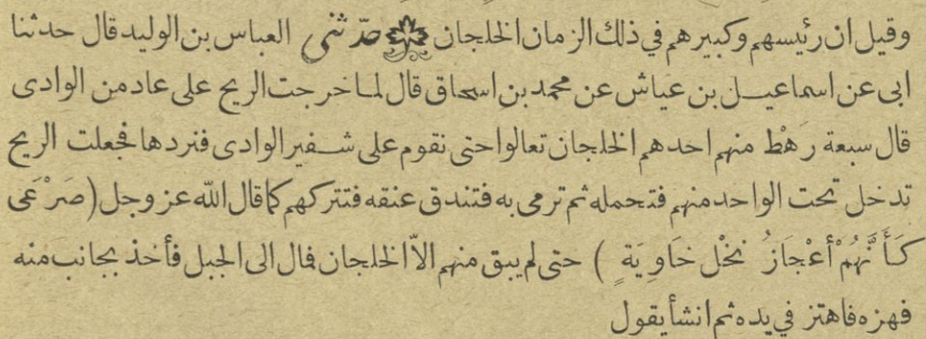 وقيل ان رئيسهم وكبيرهم في ذلك الزمان الخلجان حدّثنى العباس بن الوليد قال حدثنا
ابى عن اسماعيل بن عياش عن محمد بن اسحاق قال لما خرجت الريح على عاد من الوادى
قال سبعة رَهْط منهم احدهم الخلجان تعالوا حتى نقوم على شفير الوادى فنردها فجعلت الريح
تدخل تحت الواحد منهم فتحمله ثم ترمى به فتندق عنقه فتتركهم كما قال الله عز وجل (صَرْعَى
كَأَنَّهُمْ أَعْجَازُ نَخْل خَاوِيَةٍ ) حتى لم يبق منهم الاّ الخلجان فمال الى الجبل فأخذ بجانب منه
فهزه فاهتز في يده ثم انشأ يقول